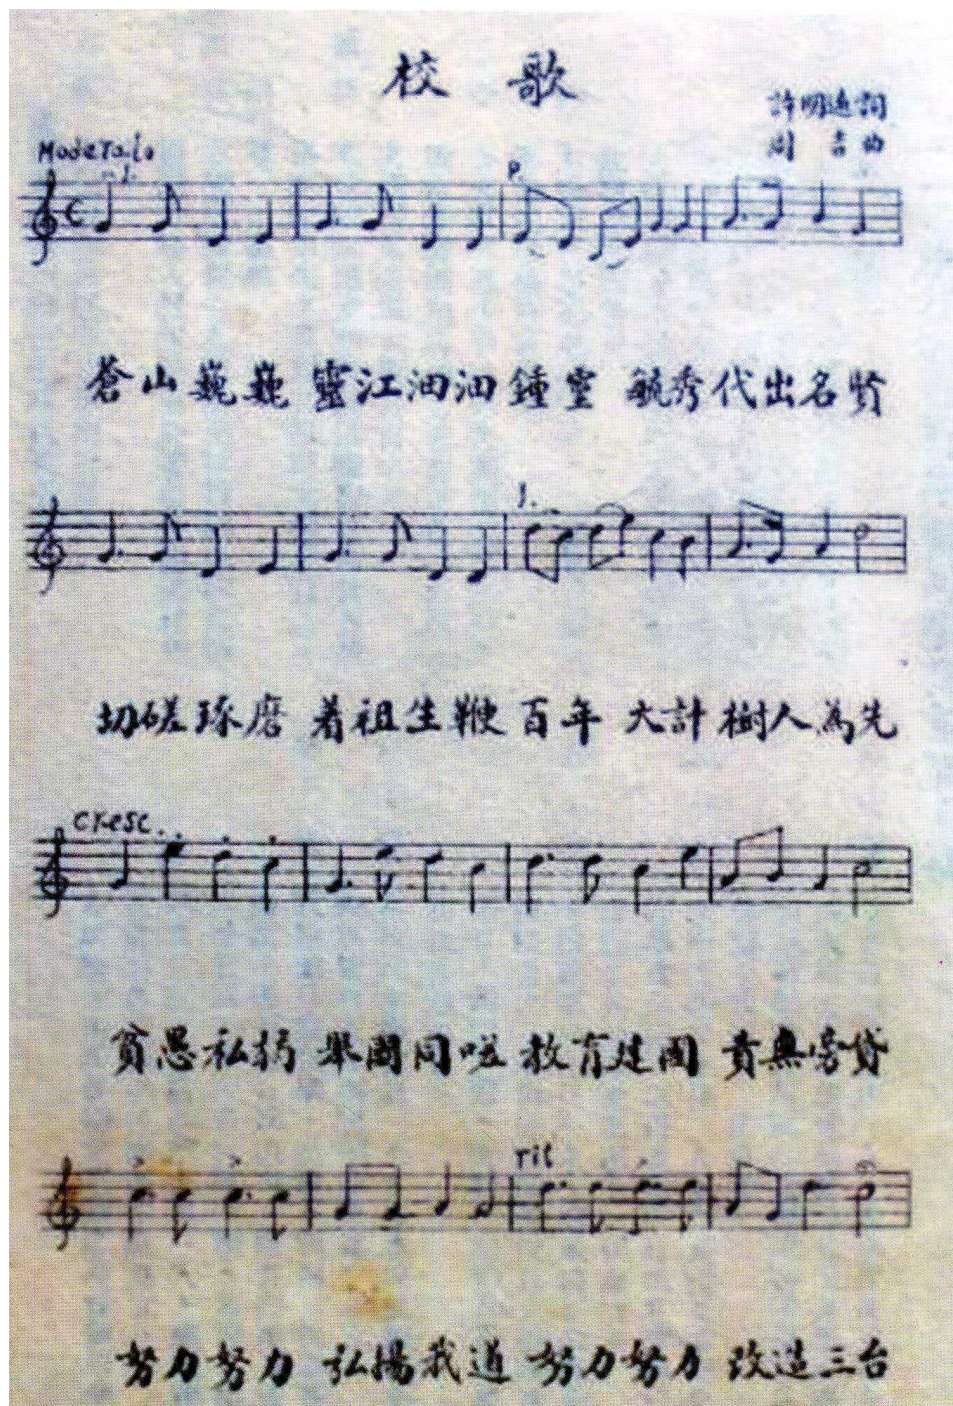 校 歌
許明遠詞
周 吉曲
Moderato
P.
蒼山巍巍 靈江洄洄 鍾靈 毓秀代出名賢
f.
切磋琢磨 着祖生鞭 百年 大計 樹人為先
cresc.
貧愚私弱 舉國同嗟 教育建國 責無旁貸
rit
努力努力 弘揚我道 努力努力 改造三台